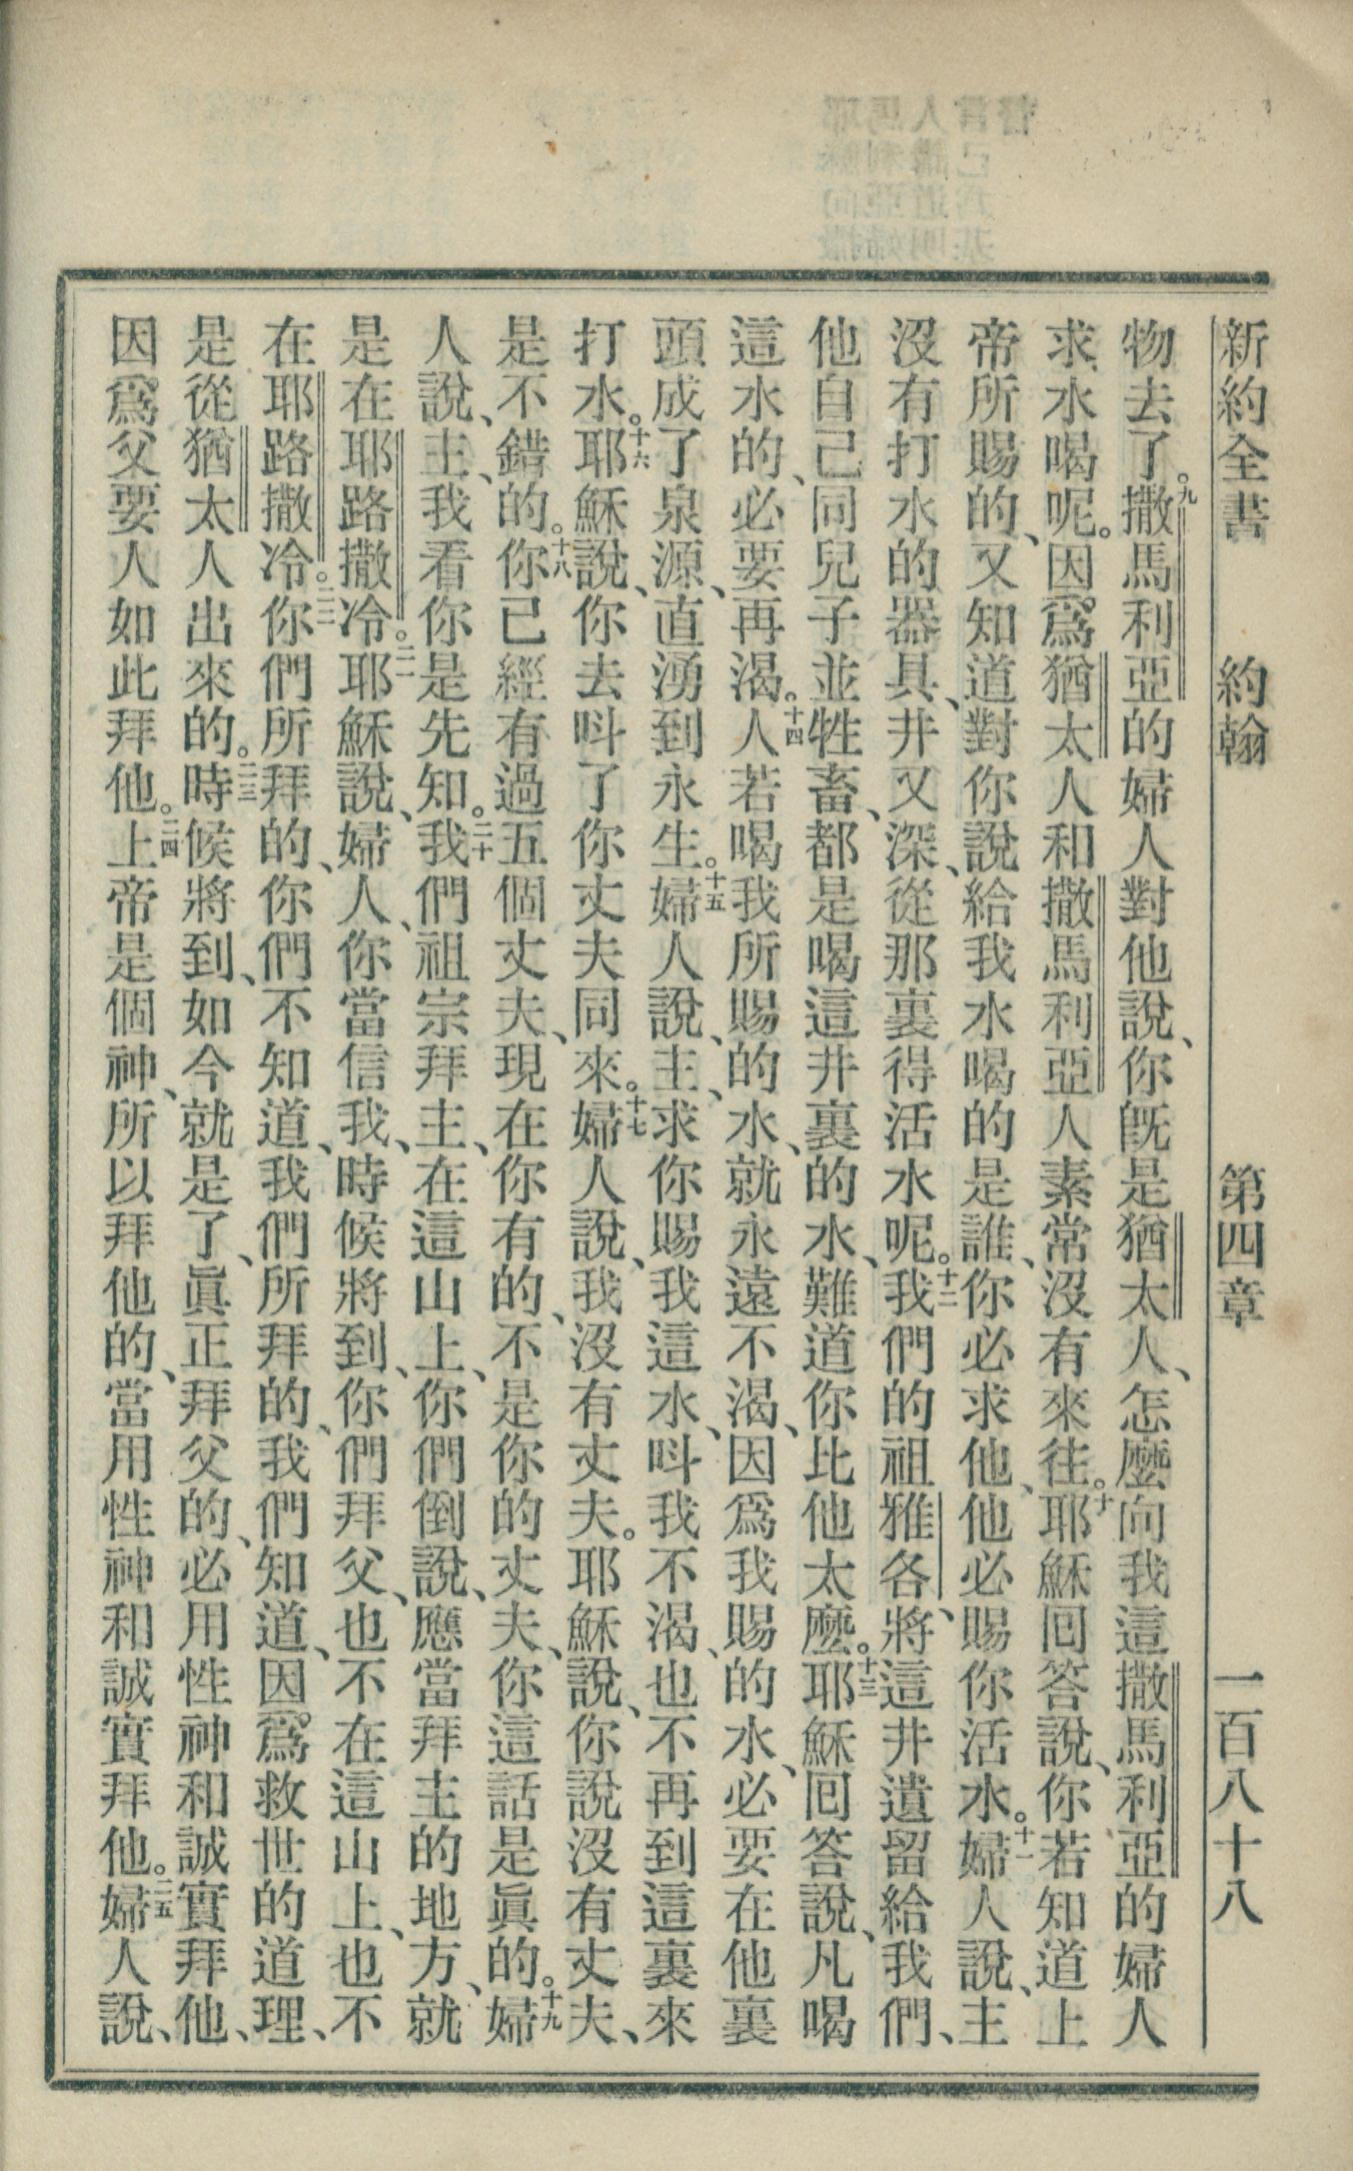 新約全書 約翰 第四章 一百八十八
物去了。九撒馬利亞的婦人對他說、你旣是猶太人、怎麼向我這撒馬利亞的婦人
求水喝呢。因爲猶太人和撒馬利亞人素常沒有來往。十耶穌回答說、你若知道上
帝所賜的、又知道對你說給我水喝的是誰、你必求他、他必賜你活水。十一婦人說、主
沒有打水的器具、井又深、從那裏得活水呢。十二我們的祖雅各、將這井遺留給我們、
他自己同兒子並牲畜、都是喝這井裏的水、難道你比他太麼。十三耶穌回答說、凡喝
這水的、必要再渴。十四人若喝我所賜的水、就永遠不渴、因爲我賜的水、必要在他裏
頭成了泉源、直湧到永生。十五婦人說、主、求你賜我這水、呌我不渴、也不再到這裏來
打水。十六耶穌說、你去呌了你丈夫同來。十七婦人說、我沒有丈夫。耶穌說、你說沒有丈夫、
是不錯的。十八你已經有過五個丈夫、現在你有的、不是你的丈夫、你這話是眞的。十九婦
人說、主、我看你是先知。二十我們祖宗拜主、在這山上、你們倒說、應當拜主的地方、就
是在耶路撒冷。二一耶穌說、婦人、你當信我、時候將到、你們拜父、也不在這山上、也不
在耶路撒冷。二二你們所拜的、你們不知道、我們所拜的、我們知道、因爲救世的道理、
是從猶太人出來的。二三時候將到、如今就是了、眞正拜父的、必用性神和誠實拜他、
因爲父要人如此拜他。二四上帝是個神、所以拜他的、當用性神和誠實拜他。二五婦人說、